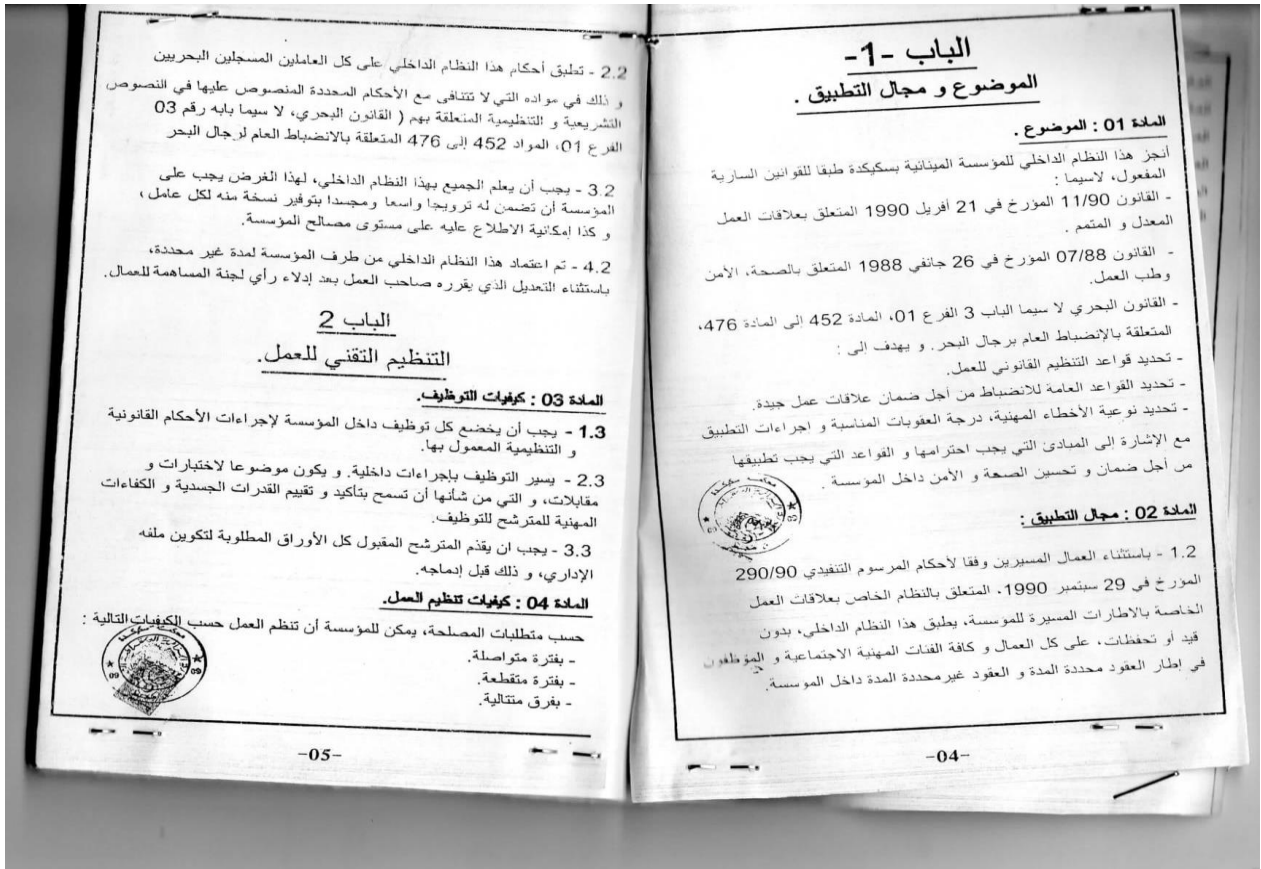 الباب -1-
الموضوع و مجال التطبيق .
المادة 01 : الموضوع .
أنجز هذا النظام الداخلي للمؤسسة المينائية بسكيكدة طبقا للقوانين السارية
المفعول، لاسيما :
- القانون 11/90 المؤرخ في 21 أفريل 1990 المتعلق بعلاقات العمل
المعدل و المتمم .
- القانون 07/88 المؤرخ في 26 جانفي 1988 المتعلق بالصحة، الأمن
وطب العمل.
- القانون البحري لا سيما الباب 3 الفرع 01، المادة 452 إلى المادة 476،
المتعلقة بالإنضباط العام برجال البحر. و يهدف إلى :
- تحديد قواعد التنظيم القانوني للعمل.
- تحديد القواعد العامة للانضباط من أجل ضمان علاقات عمل جيدة.
- تحديد نوعية الأخطاء المهنية، درجة العقوبات المناسبة و اجراءات التطبيق
مع الإشارة إلى المبادئ التي يجب احترامها و القواعد التي يجب تطبيقها
من أجل ضمان و تحسين الصحة و الأمن داخل المؤسسة .
المادة 02 : مجال التطبيق :
1.2 - باستثناء العمال المسيرين وفقا لأحكام المرسوم التنفيدي 290/90
المؤرخ في 29 سبتمبر 1990، المتعلق بالنظام الخاص بعلاقات العمل
الخاصة بالاطارات المسيرة للمؤسسة، يطبق هذا النظام الداخلي، بدون
قيد أو تحفظات، على كل العمال و كافة الفئات المهنية الاجتماعية و المؤظفون
في إطار العقود محددة المدة و العقود غير محددة المدة داخل المؤسسة.
-04-
2.2 - تطبق أحكام هذا النظام الداخلي على كل العاملين المسجلين البحريين
و ذلك في مواده التي لا تتنافى مع الأحكام المحددة المنصوص عليها في النصوص
التشريعية و التنظيمية المتعلقة بهم ( القانون البحري، لا سيما بابه رقم 03
الفرع 01، المواد 452 إلى 476 المتعلقة بالانضباط العام لرجال البحر
3.2 - يجب أن يعلم الجميع بهذا النظام الداخلي، لهذا الغرض يجب على
المؤسسة أن تضمن له ترويجا واسعا ومجسدا بتوفير نسخة منه لكل عامل ،
و كذا إمكانية الاطلاع عليه على مستوى مصالح المؤسسة.
4.2 - تم اعتماد هذا النظام الداخلي من طرف المؤسسة لمدة غير محددة،
باستثناء التعديل الذي يقرره صاحب العمل بعد إدلاء رأي لجنة المساهمة للعمال.
الباب 2
التنظيم التقني للعمل.
المادة 03 : كيفيات التوظيف.
1.3 - يجب أن يخضع كل توظيف داخل المؤسسة لإجراءات الأحكام القانونية
و التنظيمية المعمول بها.
2.3 - يسير التوظيف بإجراءات داخلية. و يكون موضوعا لاختبارات و
مقابلات، و التي من شأنها أن تسمح بتأكيد و تقييم القدرات الجسدية و الكفاءات
المهنية للمترشح للتوظيف.
3.3 - يجب ان يقدم المترشح المقبول كل الأوراق المطلوبة لتكوين ملفه
الإداري، و ذلك قبل إدماجه.
المادة 04 : كيفيات تنظيم العمل.
حسب متطلبات المصلحة، يمكن للمؤسسة أن تنظم العمل حسب الكيفيات التالية :
- بفترة متواصلة.
- بفترة متقطعة.
- بفرق متتالية.
-05-